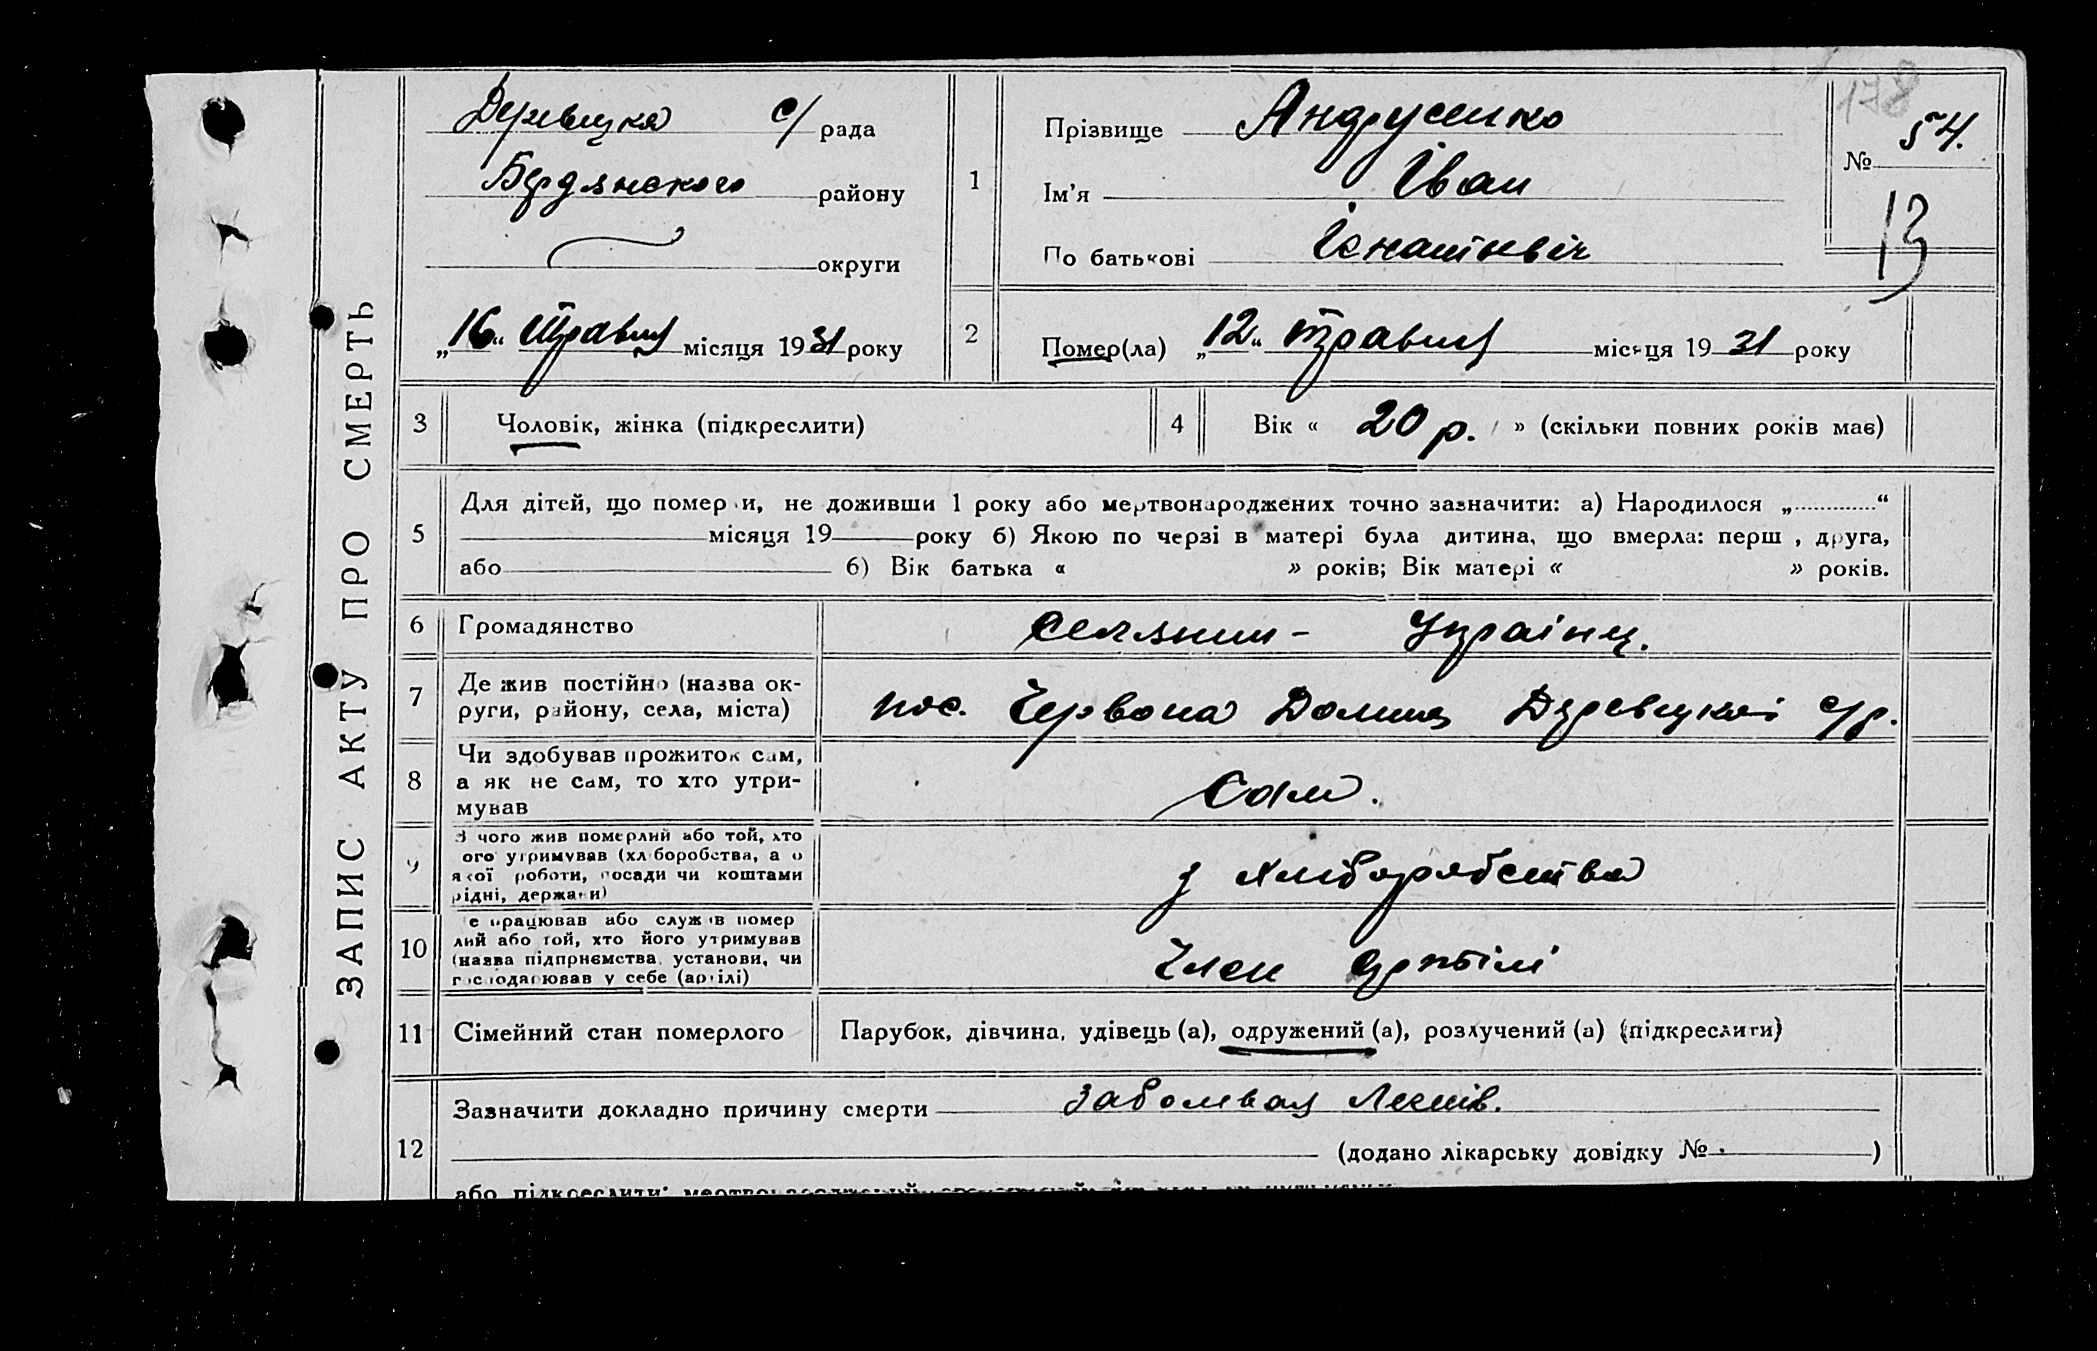 178
ЗАПИС АКТУ ПРО СМЕРТЬ
с/ рада
Бердянского району
округи
„16“ Травня місяця 1931 року
1
Прізвище Андрусенко
Ім'я Іван
По батькові Ігнатович
№ 54.
13
2
Помер(ла) „12“ травня місяця 1931 року
3 Чоловік, жінка (підкреслити)
4 Вік « 20 р. » (скільки повних років має)
5
Для дітей, що померли, не доживши 1 року або мертвонароджених точно зазначити: а) Народилося „ “
місяця 19 року б) Якою по черзі в матері була дитина, що вмерла: перш , друга,
або б) Вік батька « » років; Вік матері « » років.
6 Громадянство селянин - Українц.
7 Де жив постійно (назва ок-
руги, району, села, міста) пос. Червона Долина с/р.
8 Чи здобував прожиток сам,
а як не сам, то хто утри-
мував Сам.
9 З чого жив померлий або той, хто
ого утримував (хліборобства, а о
якої роботи, посади чи коштами
рідні, держави) з хліборобства
10 е працював або служив помер
лий або той, хто його утримував
(назва підприємства, установи, чи
господарював у себе (артілі) Член Артілі
11 Сімейний стан померлого Парубок, дівчина, удівець (а), одружений (а), розлучений (а) (підкреслити)
12
Зазначити докладно причину смерти Заболіваня Легенів.
(додано лікарську довідку № )
або підкреслити: